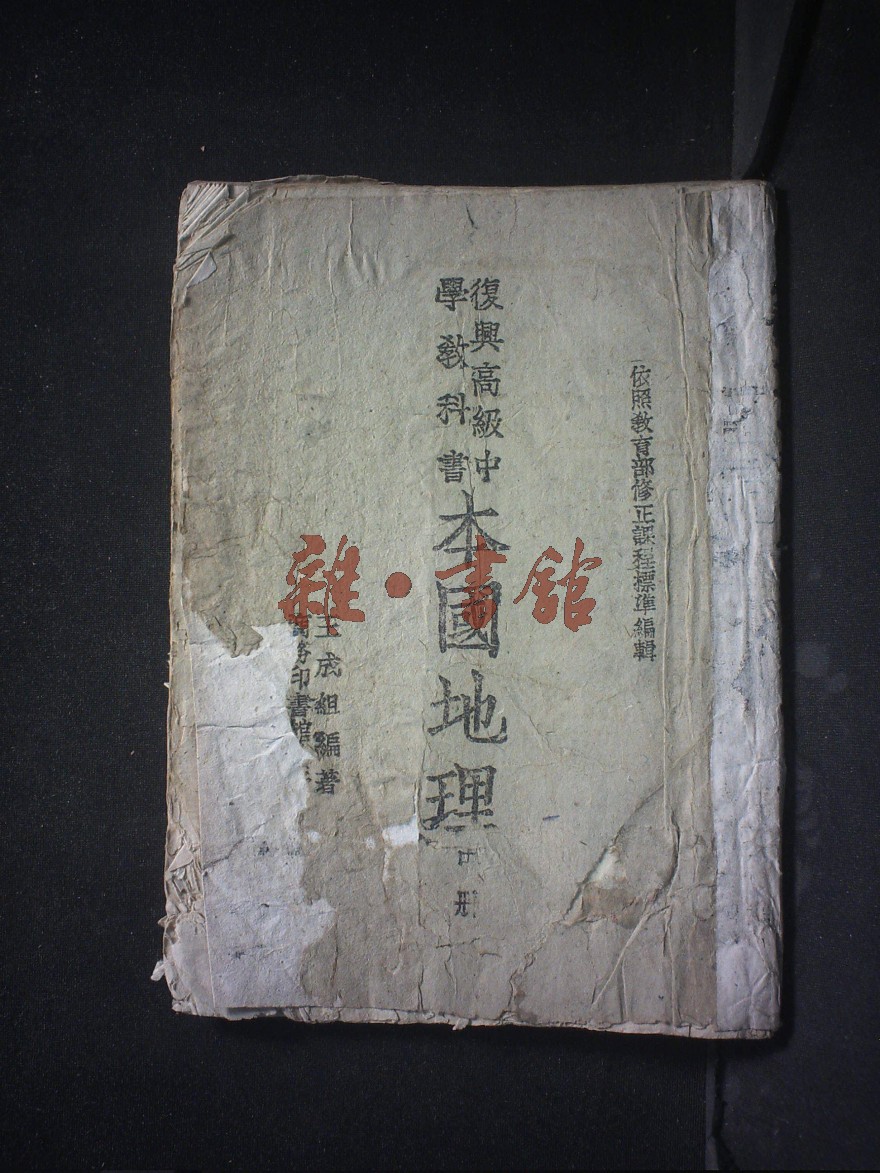 依照教育部修正課程標準編輯
復興高級中
學教科書
本國地理
冊
王成組編著
商務印書館
雜·書館